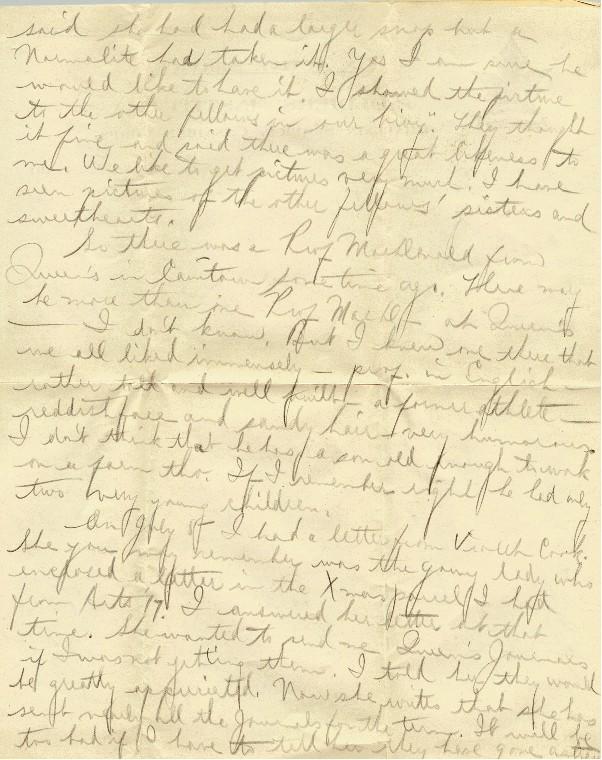 said she had had a large snap but a
Normalite had taken it. Yes I am sure he
would like to have it. I showed the picture
to the other fellows in our "bivy". They thought
it fine and said there was a great likeness to
me. We like to get pictures very much. I have
seen pictures of the other fellows' sisters and
sweethearts.
So there was a Prof MacDonald from
Queen's in Caintown some time ago. There may
be more than one Prof MacD— at Queen's
— I don't know. But I knew one there that
we all liked immensely — prof. in English —
rather tall and well built — a former athlete —
reddish face and sandy hair — very humorous.
I don't think that he has a son old enough to work
on a farm tho. If I remember right he had only
two very young children.
On July I had a letter from Cook.
She you may remember was the young lady who
enclosed a letter in the Xmas parcel I had
from Arts '17. I answered her letter at that
time. She wanted to send me Queen's Journals
if I was not getting them. I told her they would
be greatly appreciated. Now she writes that she has
sent nearly all the Journals for the term. It will be
too bad if I have to tell her they have gone